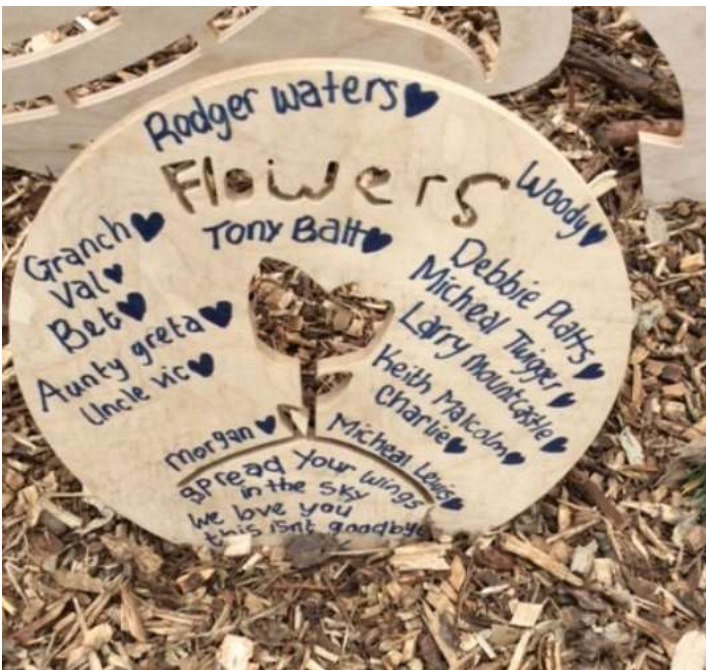 Rodger Waters
Flowers
Woody
Tony Batt
Granch
Val
Bet
Aunty greta
Uncle vic
Debbie Platts
Micheal Twigger
Larry Mountcastle
Keith Malcolm
Charlie
Morgan
Micheal Lewis
Spread your wings
in the sky
we love you
this isnt goodbye